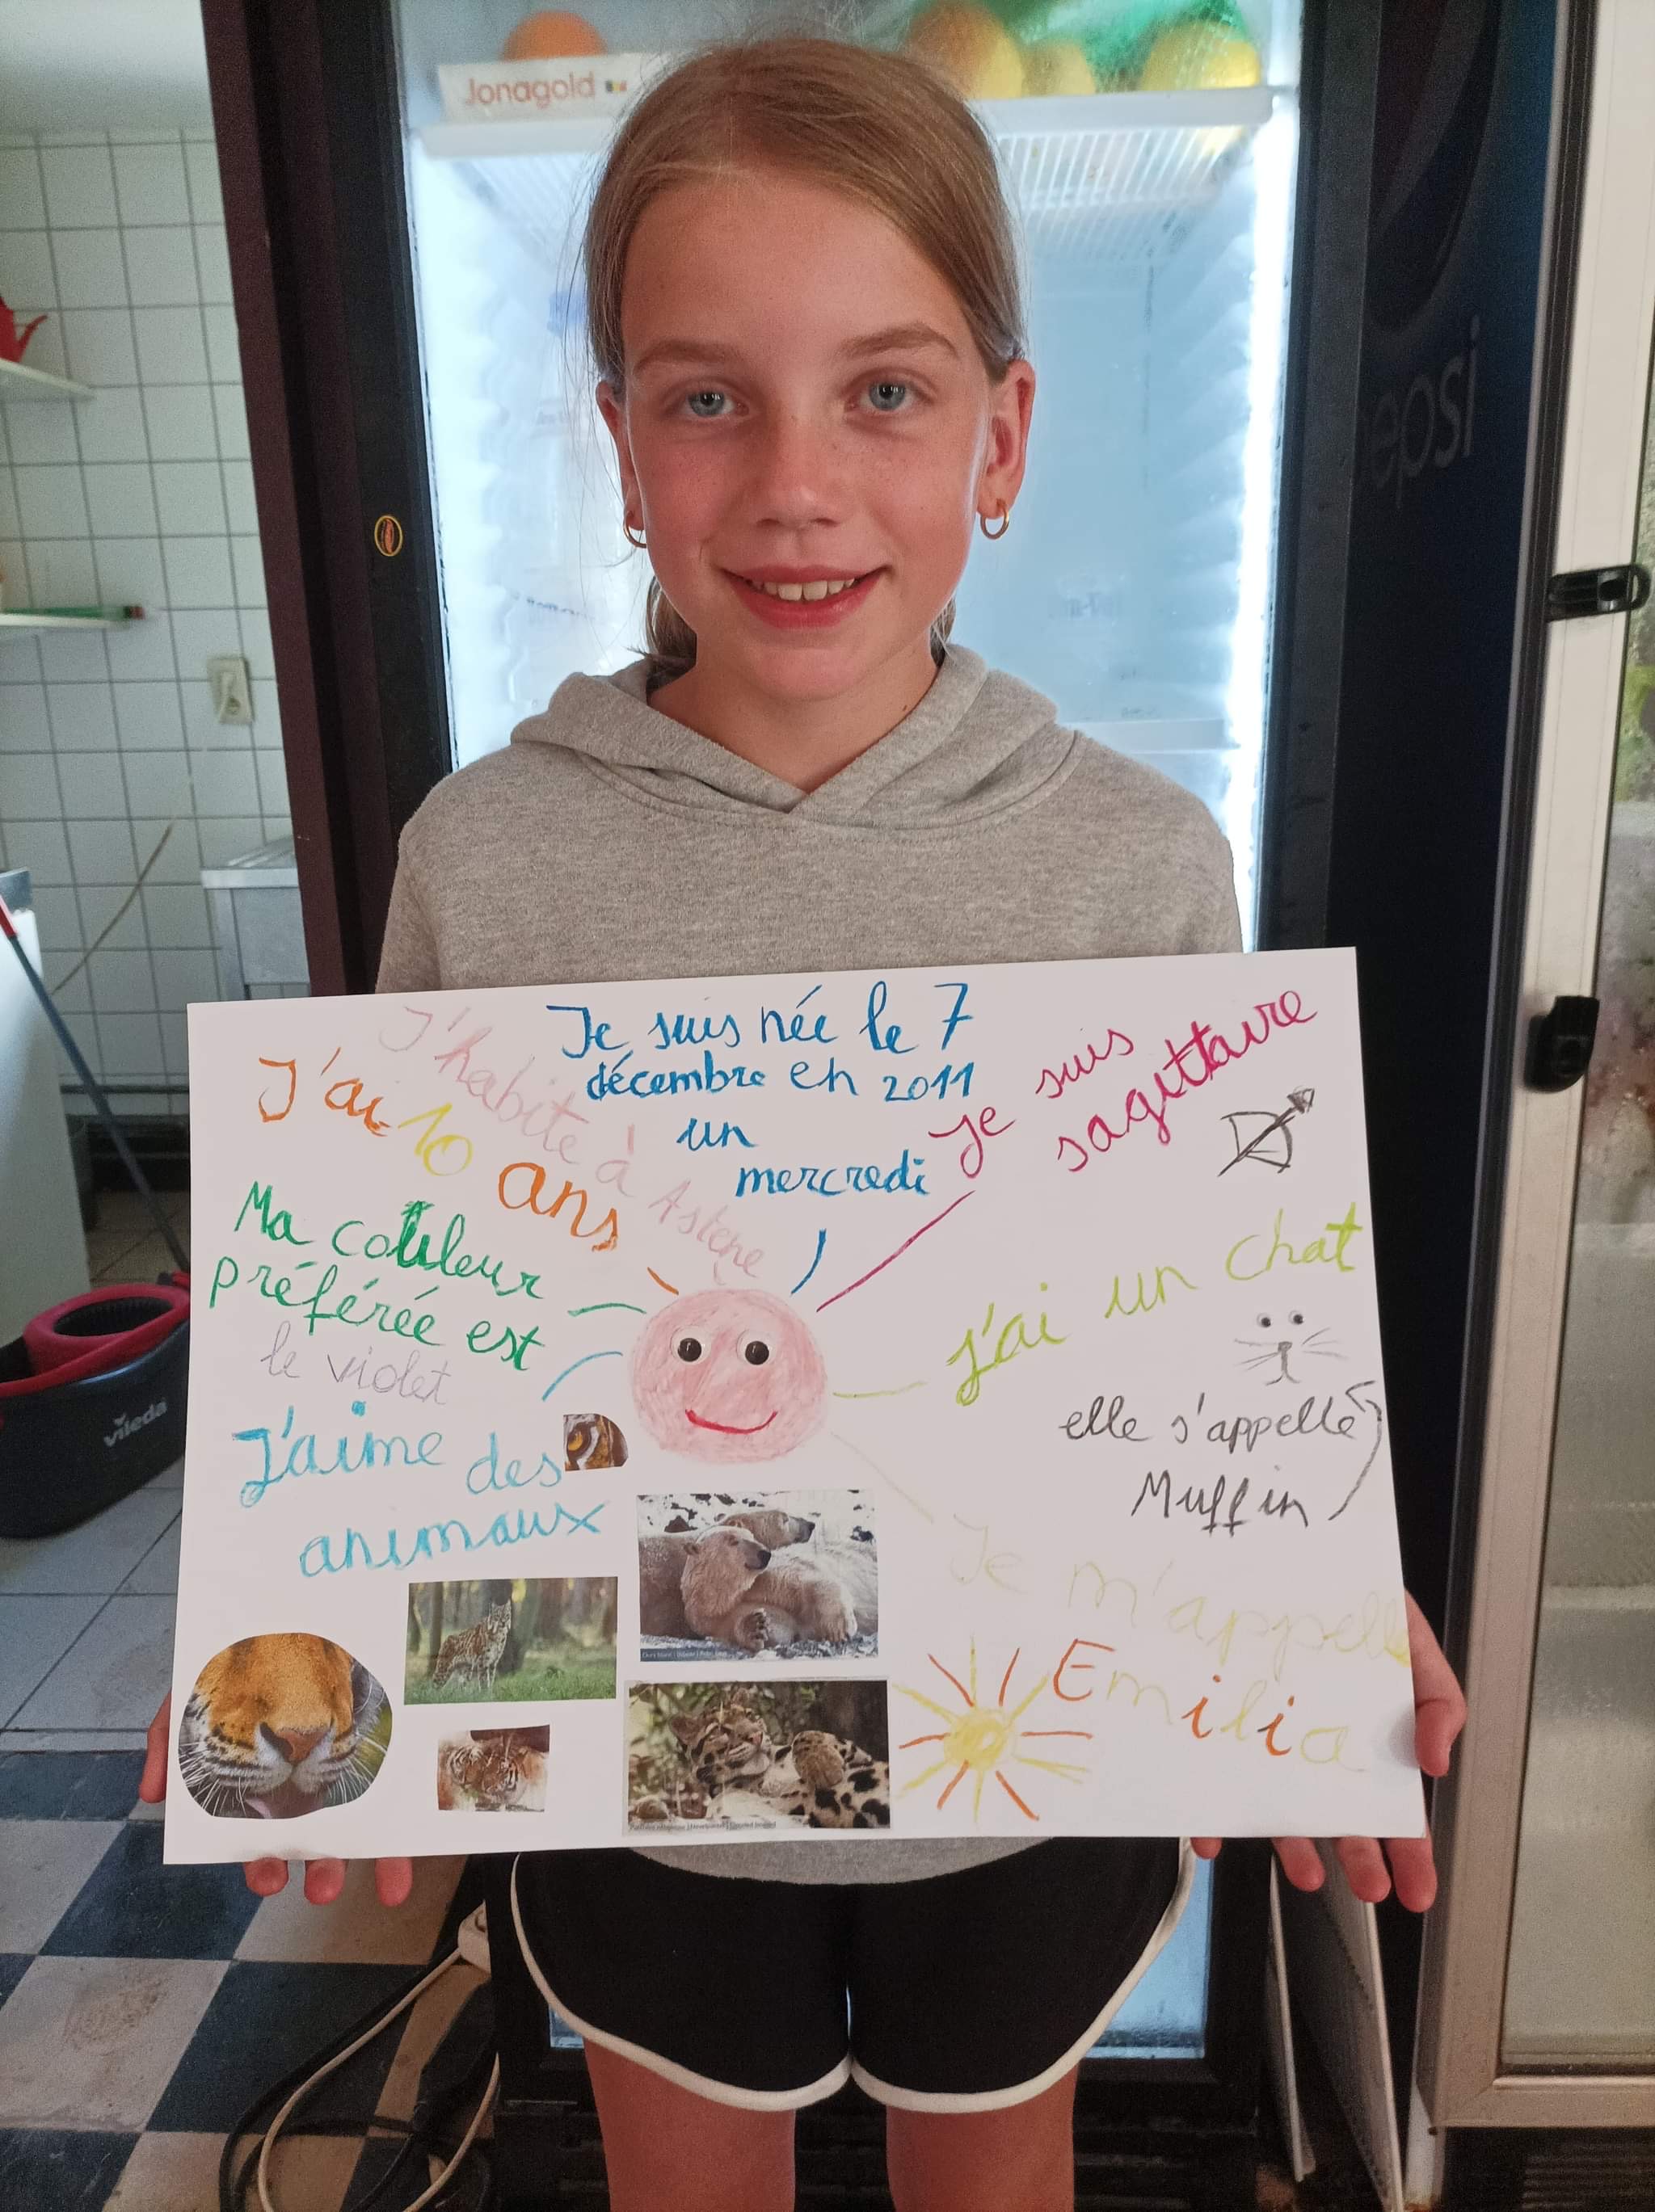 Jonagold
epsi
J'habite à Astene
Je suis née le 7
décembre en 2011
un
mercredi
Je suis
sagittaire
J'ai 10
ans
Ma couleur
préférée est
le violet
J'aime des
animaux
j'ai un chat
elle s'appelle
Muffin
Je m'appelle
Emilia
vileda